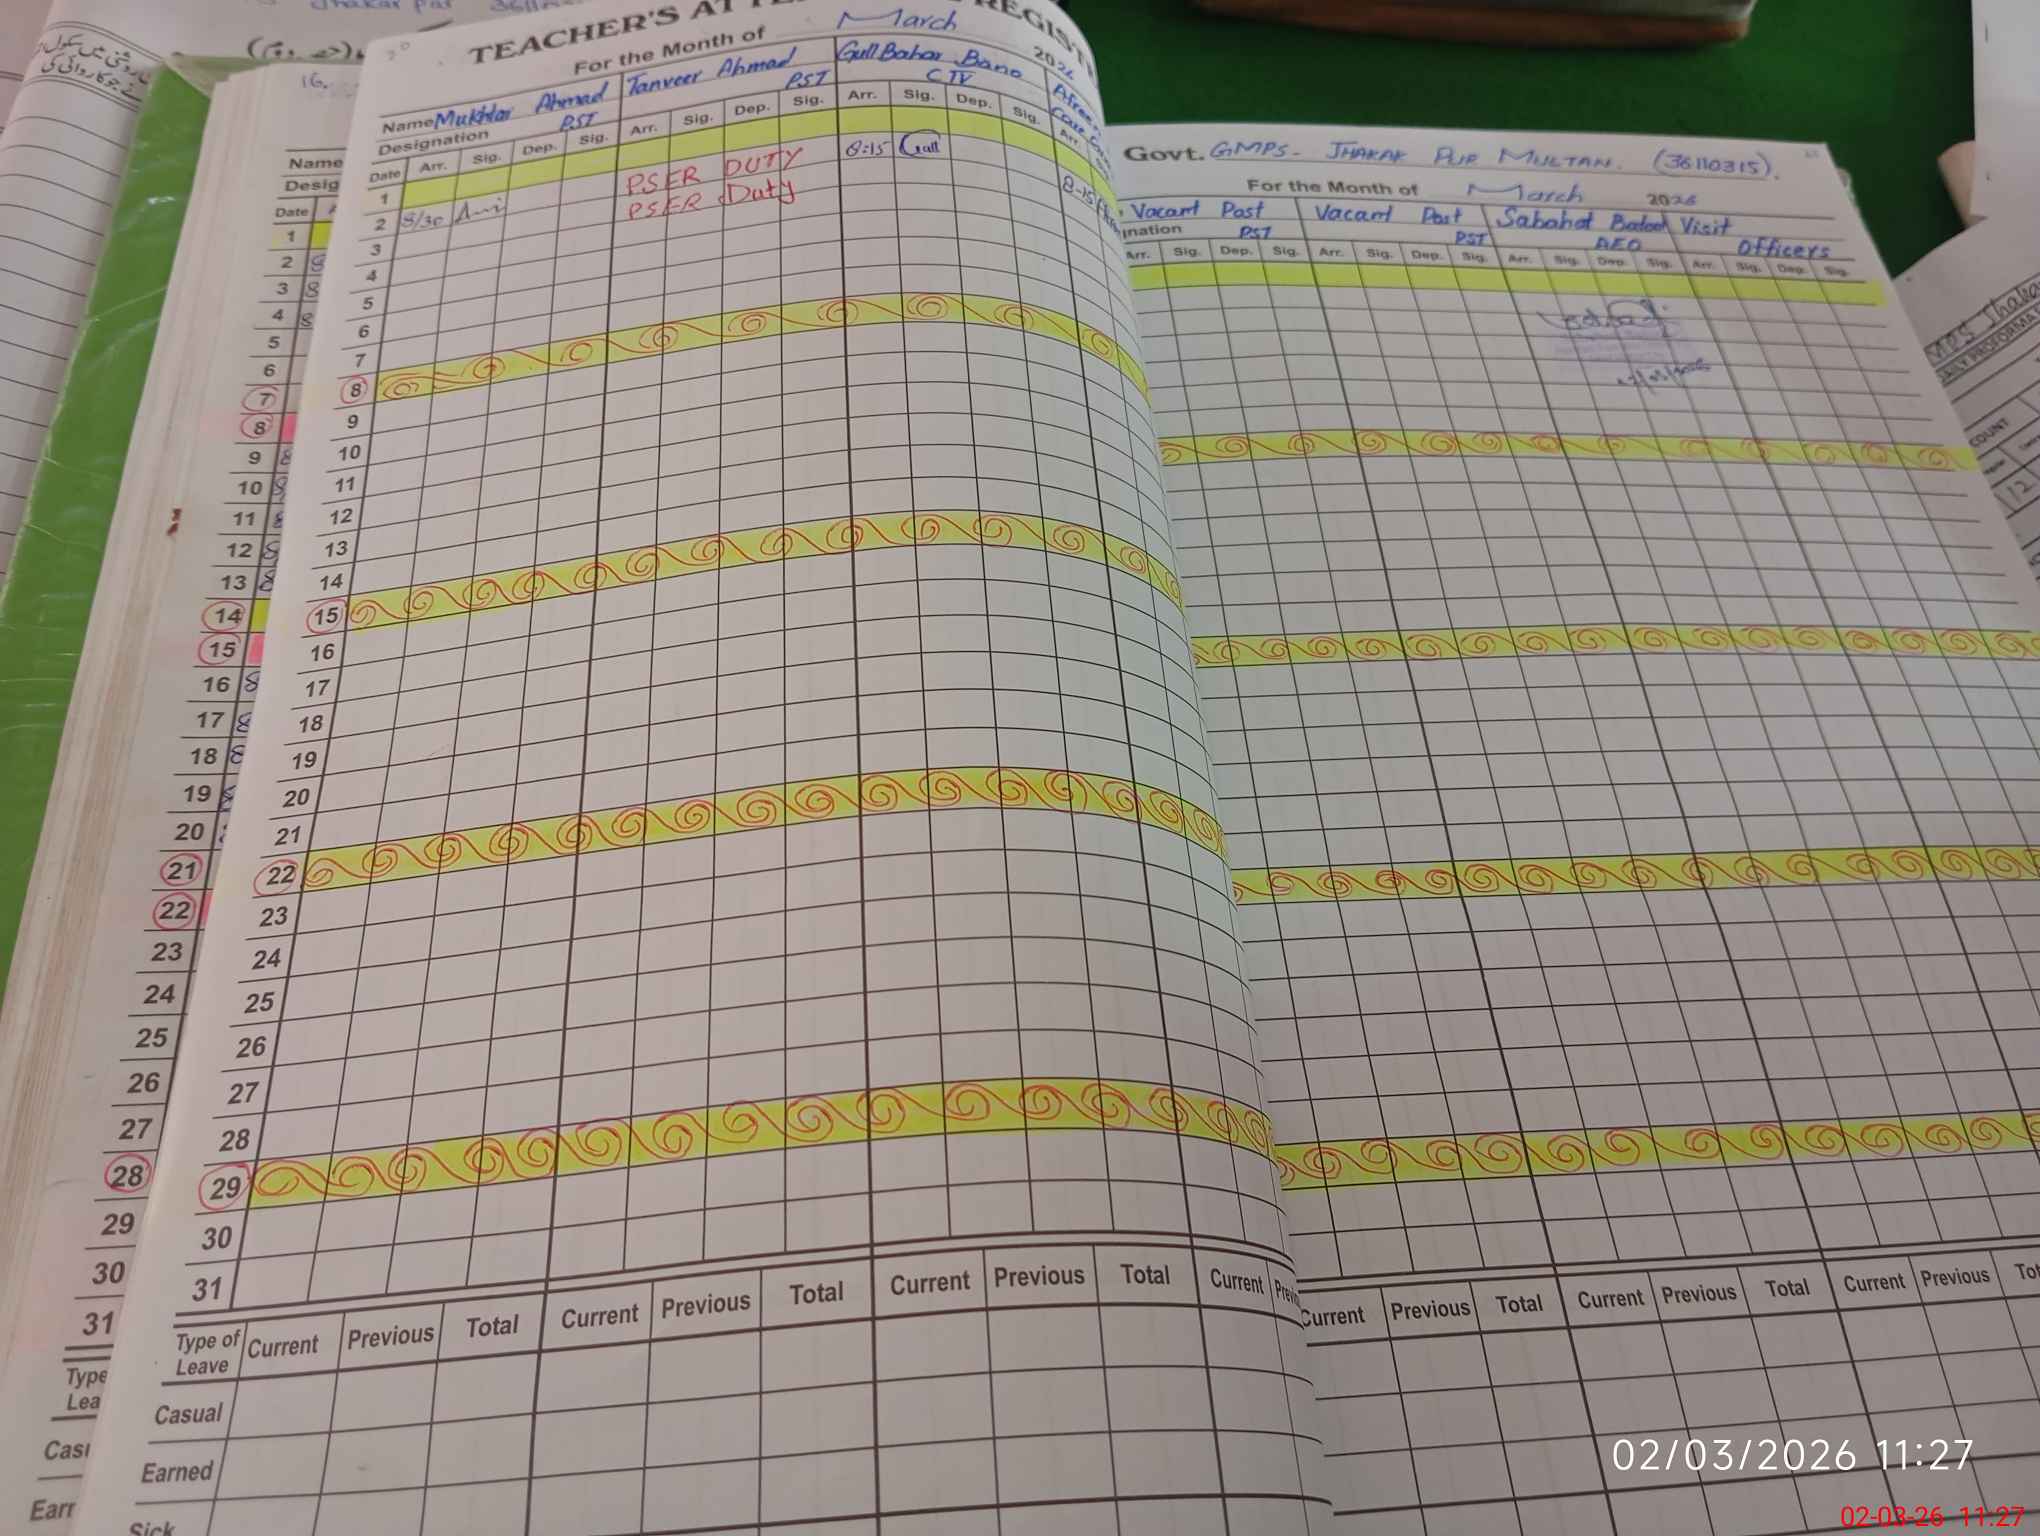 TEACHER'S
For the Month of March 2026
Name Mukhtar Ahmad Tanveer Ahmad Gull Bahar Bano
Designation PST PST CTI
Date Arr. Sig. Dep. Sig. Arr. Sig. Dep. Sig. Arr. Sig. Dep. Sig. Arr.
1 PSER DUTY 8:15
2 8/30 PSER Duty 8-15
3
4
5
6
7
8
9
10
11
12
13
14
15
16
17
18
19
20
21
22
23
24
25
26
27
28
29
30
31
Type of Leave Current Previous Total Current Previous Total Current Previous Total Current
Casual
Earned
Sick
Govt. GMPS. JHAKAR PUR MULTAN. (36110315).
For the Month of March 2026
Vacant Post Vacant Post Sabahat Batool Visit
PST PST AEO Officers
Arr. Sig. Dep. Sig. Arr. Sig. Dep. Sig. Arr. Sig. Dep. Sig. Arr. Sig. Dep. Sig.
Current Previous Total Current Previous Total Current Previous
Name
Date
1
2 8
3 8
4 8
5
6
7
8
9 8
10 8
11 8
12 8
13 8
14
15
16 8
17 8
18 8
19
20
21
22
23
24
25
26
27
28
29
30
31
Type
02/03/2026 11:27
02-03-26 11:27